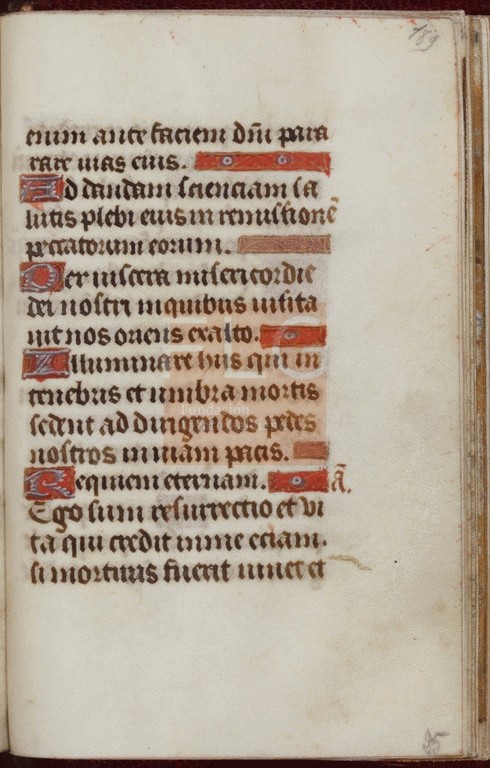 189
enim ante faciem dñi para
rare vias eius.
Ad dandam scienciam sa
lutis plebi eius in remissionē
peccatorum eorum.
Per viscera misericordie
dei nostri inquibus visita
uit nos oriens exalto.
Illuminare hiis qui in
tenebris et umbra mortis
sedent ad dirigendos pedes
nostros in viam pacis.
Requiem eternam. ā.
Ego sum resurrectio et vi
ta qui credit inme eciam.
si mortuus fuerit vivet et
Fundación